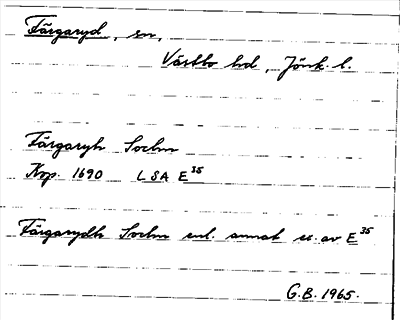 Färgaryd, sn,
Västbo hd, Jönk. l.
Färgaryh Sochn
Kop. 1690 LSA E³⁵
Färgarydh Sochn enl. annat ex. av E³⁵
G.B. 1965.